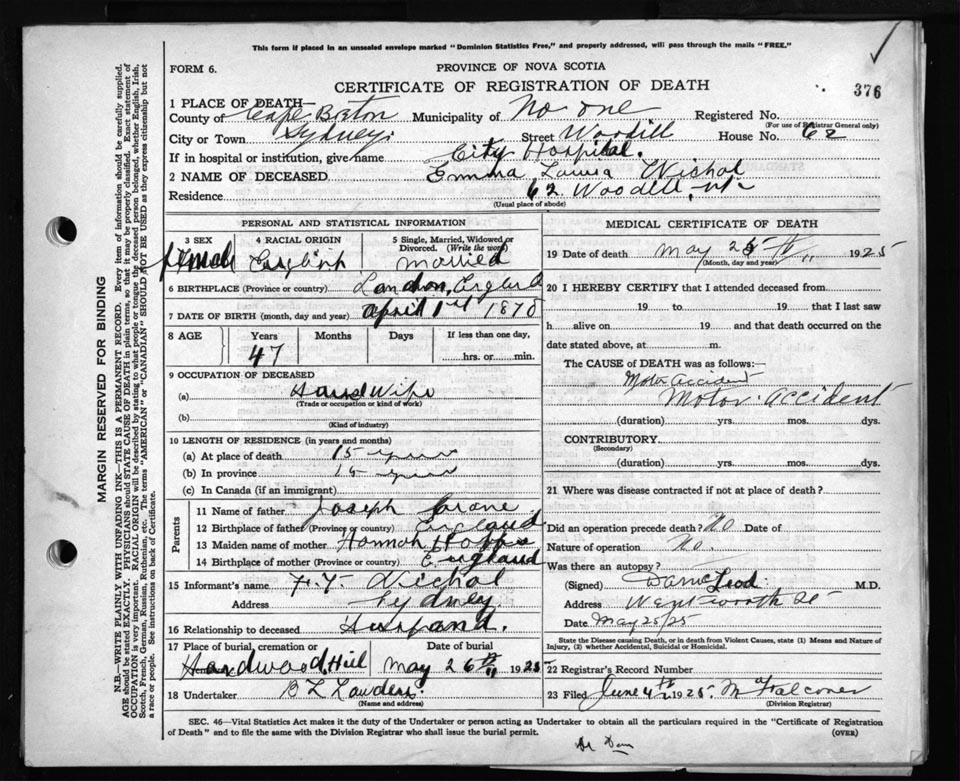 This form if placed in an unsealed envelope marked "Dominion Statistics Free," and properly addressed, will pass through the mails "FREE."
FORM 6.
PROVINCE OF NOVA SCOTIA
CERTIFICATE OF REGISTRATION OF DEATH
376
1 PLACE OF DEATH—
County of Cape Breton Municipality of No one Registered No.
(For use of Registrar General only)
City or Town Sydney Street Woodill House No. 62
If in hospital or institution, give name City Hospital.
2 NAME OF DECEASED Emma Laura Nichol
Residence 62 Woodill St
(Usual place of abode)
PERSONAL AND STATISTICAL INFORMATION
3 SEX 4 RACIAL ORIGIN 5 Single, Married, Widowed or Divorced. (Write the word)
female English Married
6 BIRTHPLACE (Province or country) London, England
7 DATE OF BIRTH (month, day and year) April 1st 1878
8 AGE Years Months Days If less than one day,
47 hrs. or min.
9 OCCUPATION OF DECEASED
(a) House Wife
(Trade or occupation or kind of work)
(b)
(Kind of industry)
10 LENGTH OF RESIDENCE (in years and months)
(a) At place of death 15 years
(b) In province 15 years
(c) In Canada (if an immigrant)
Parents
11 Name of father Joseph
12 Birthplace of father (Province or country) England
13 Maiden name of mother Hannah
14 Birthplace of mother (Province or country) England
15 Informant's name F. Y. Nichol
Address Sydney
16 Relationship to deceased Husband.
17 Place of burial, cremation or Date of burial
Hardwood Hill May 26th 1925
18 Undertaker B L Lawders
(Name and address)
MEDICAL CERTIFICATE OF DEATH
19 Date of death May 25th 1925
(Month, day and year)
20 I HEREBY CERTIFY that I attended deceased from
19 to 19 that I last saw
h alive on 19 and that death occurred on the
date stated above, at m.
The CAUSE of DEATH was as follows:
Motor accident
Motor accident
(duration) yrs. mos. dys.
CONTRIBUTORY
(Secondary)
(duration) yrs. mos. dys.
21 Where was disease contracted if not at place of death?
Did an operation precede death? No Date of
Nature of operation No.
Was there an autopsy?
(Signed) McLeod M.D.
Address Wentworth St
Date May 25/25
State the Disease causing Death, or in death from Violent Causes, state (1) Means and Nature of Injury, (2) whether Accidental, Suicidal or Homicidal.
22 Registrar's Record Number
23 Filed June 4th 1925. M Falconer
(Division Registrar)
SEC. 46—Vital Statistics Act makes it the duty of the Undertaker or person acting as Undertaker to obtain all the particulars required in the "Certificate of Registration
of Death" and to file the same with the Division Registrar who shall issue the burial permit.
(OVER)
MARGIN RESERVED FOR BINDING
N.B.—WRITE PLAINLY, WITH UNFADING INK—THIS IS A PERMANENT RECORD. Every item of information should be carefully supplied.
AGE should be stated EXACTLY. PHYSICIANS should STATE CAUSE OF DEATH in plain terms, so that it may be properly classified. Exact statement of
OCCUPATION is very important. RACIAL ORIGIN will be described by stating to what people or tongue the deceased person belonged, whether English, Irish,
Scotch, French, German, Russian, Ruthenian, etc. The terms "AMERICAN" or "CANADIAN" SHOULD NOT BE USED as they express citizenship but not
a race or people. See instructions on back of Certificate.